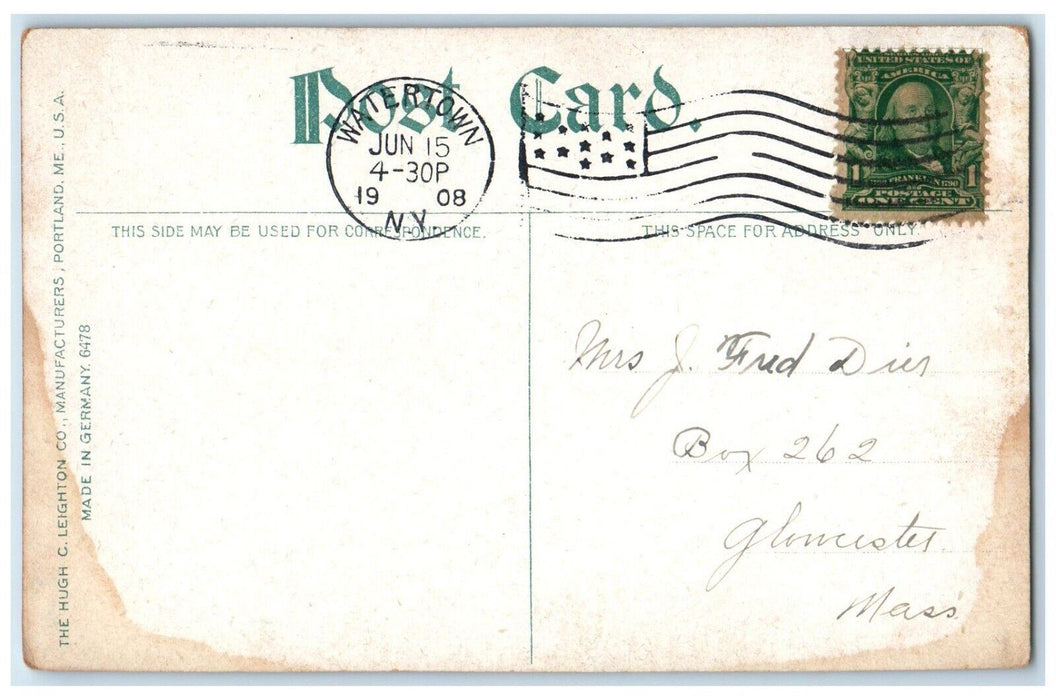 Post Card.
WATERTOWN
JUN 15
4-30P
19 08
N.Y.
UNITED STATES OF
AMERICA
1 FRANKLIN 1
POSTAGE
ONE CENT
THIS SIDE MAY BE USED FOR CORRESPONDENCE.
THIS SPACE FOR ADDRESS ONLY.
THE HUGH C. LEIGHTON CO., MANUFACTURERS, PORTLAND, ME., U.S.A.
MADE IN GERMANY. 6478
Mrs J. Fred Dies
Box 262
Gloucester
Mass